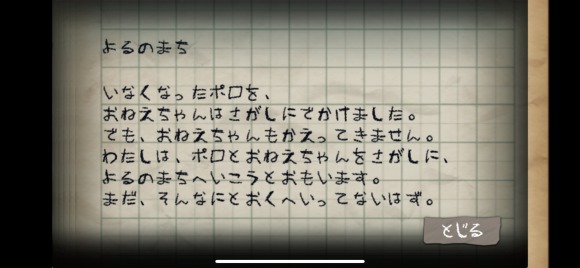 よるのまち
いなくなったポロを、
おねえちゃんはさがしにでかけました。
でも、おねえちゃんもかえってきません。
わたしは、ポロとおねえちゃんをさがしに、
よるのまちへいこうとおもいます。
まだ、そんなにとおくへいってないはず。
とじる